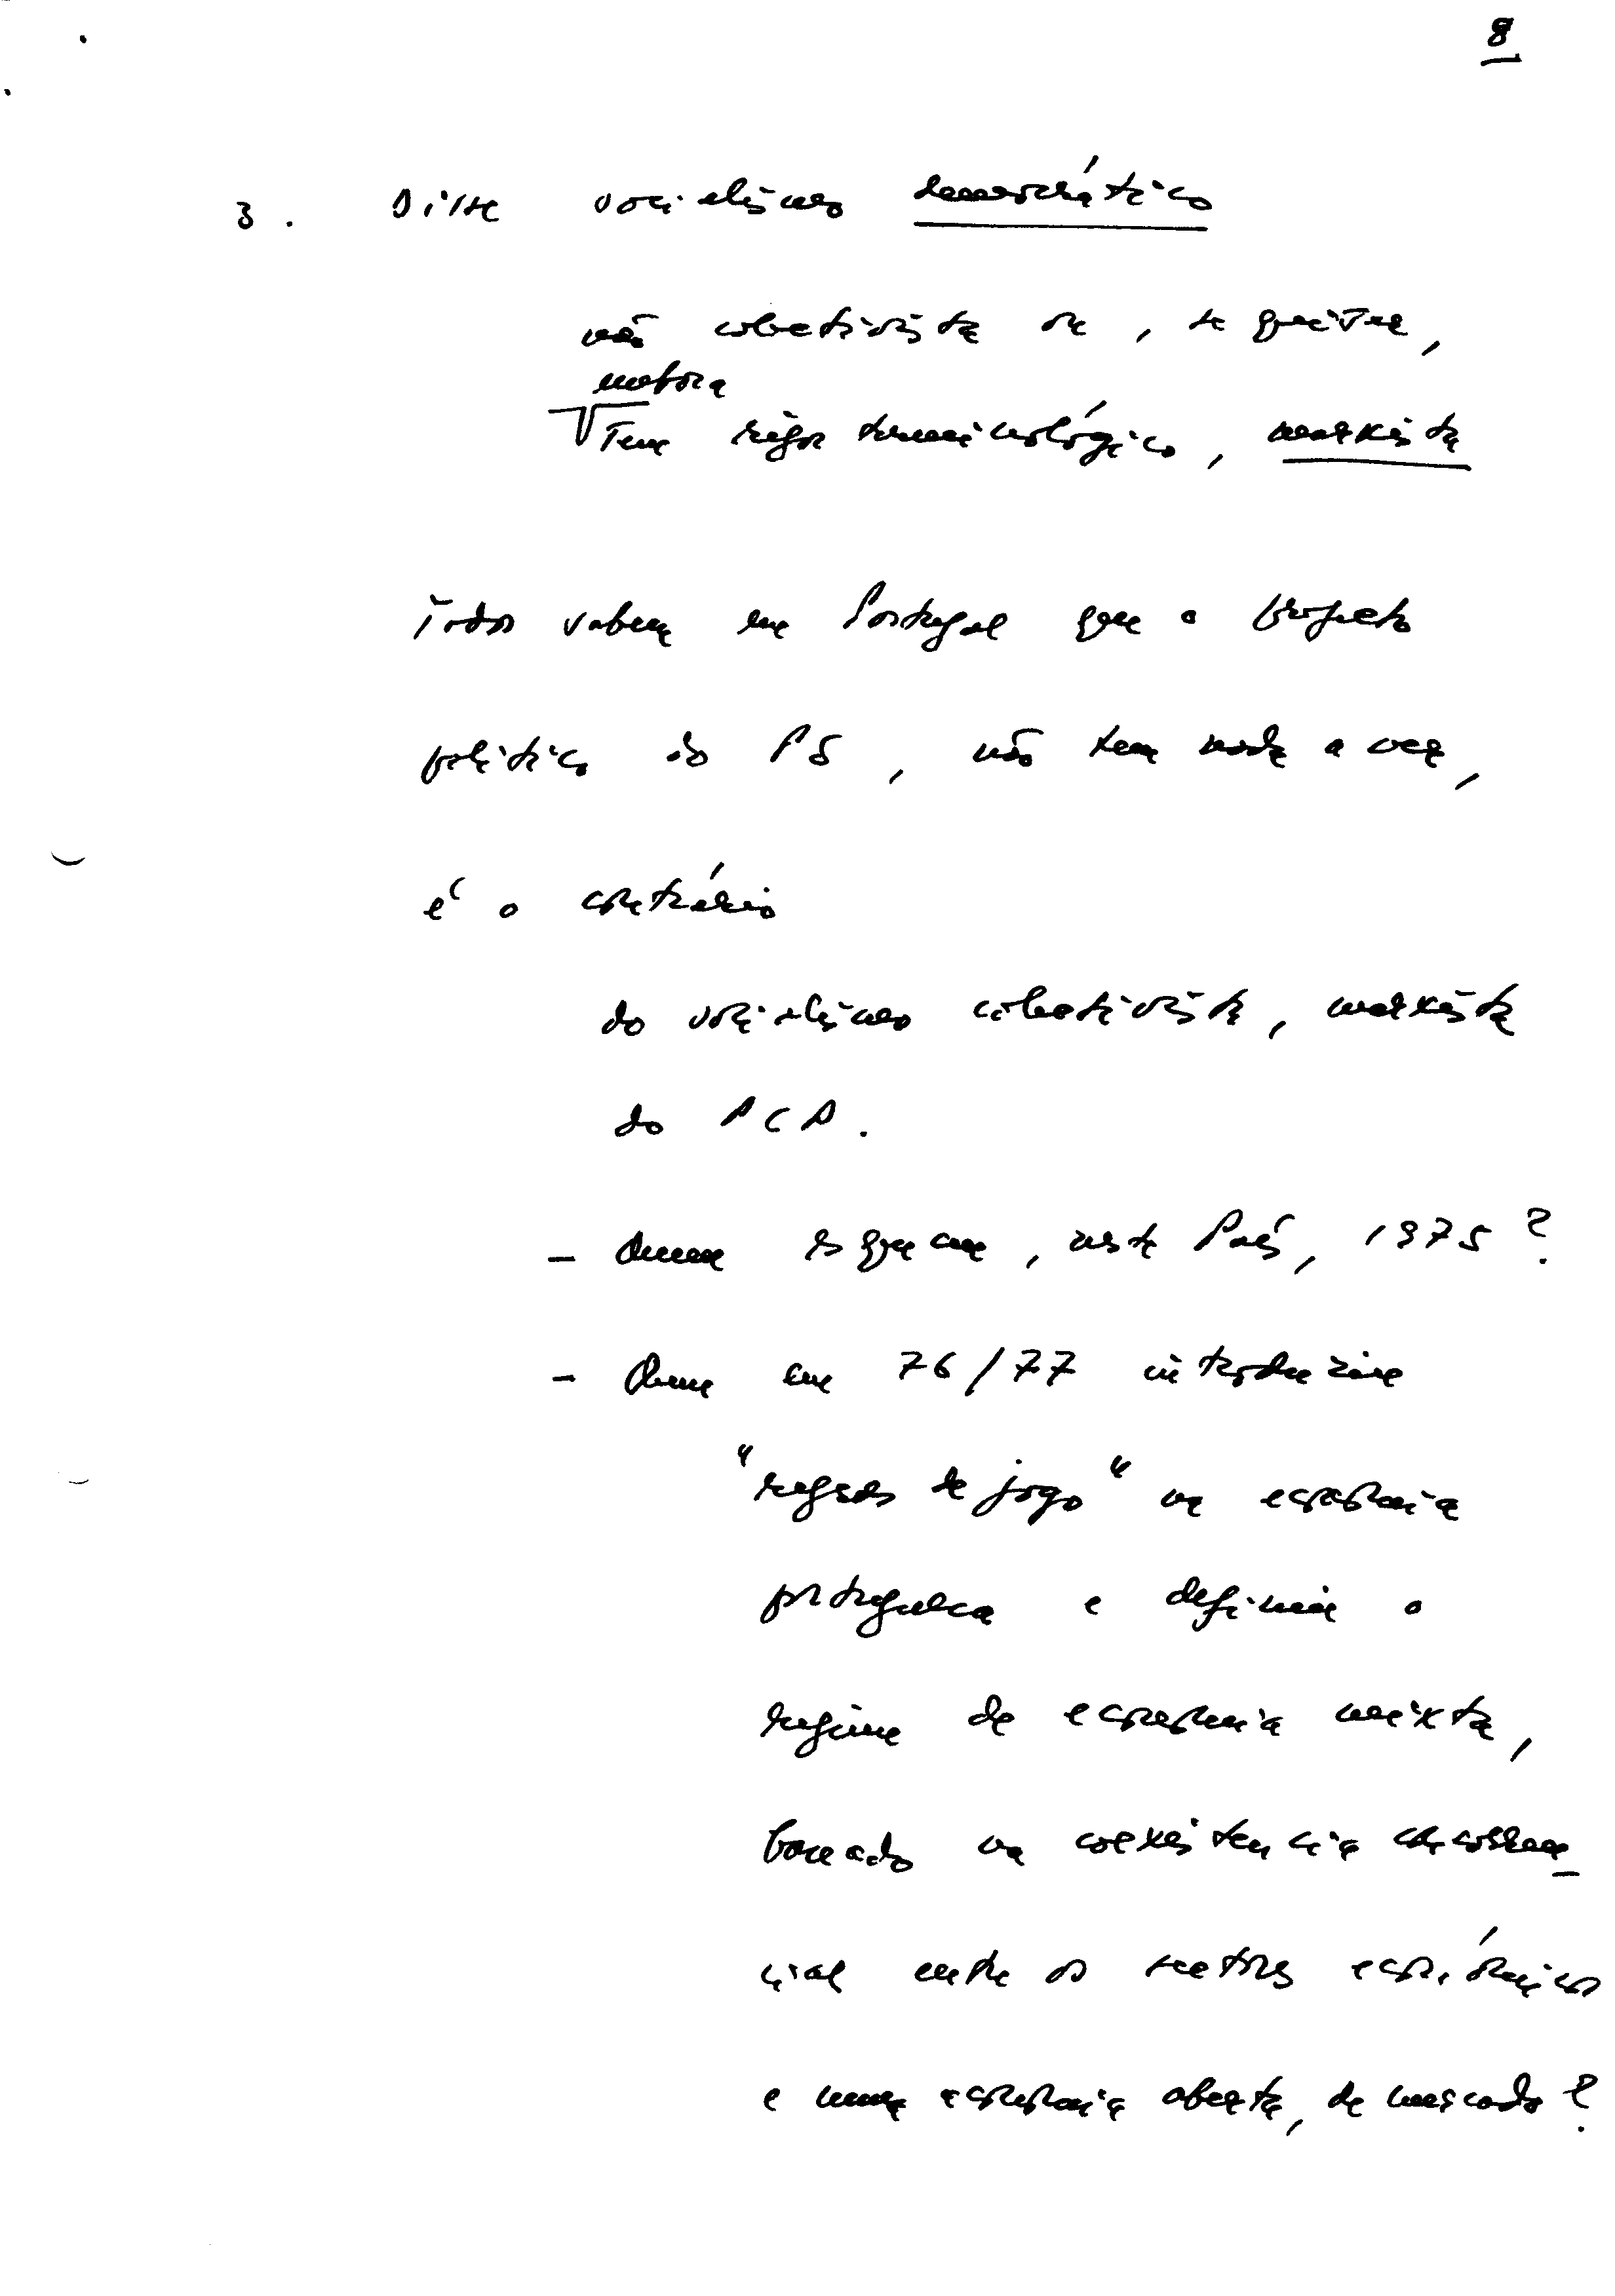 8
3. Disse socialismo democrático
não colectivista ou, se quiser,
embora
sem rigor terminológico, marxista
Todos sabem em Portugal que o projecto
político do PS, não tem nada a ver,
é o contrário
do socialismo colectivista, marxista
do PCP.
- Quem esquece, neste País, 1975?
- Quem em 76/77 introduziu
"regras de jogo" na economia
portuguesa e definiu o
regime de economia mixta,
baseado na coexistência concorren-
cial entre os sectores económicos
e numa economia aberta, de mercado?